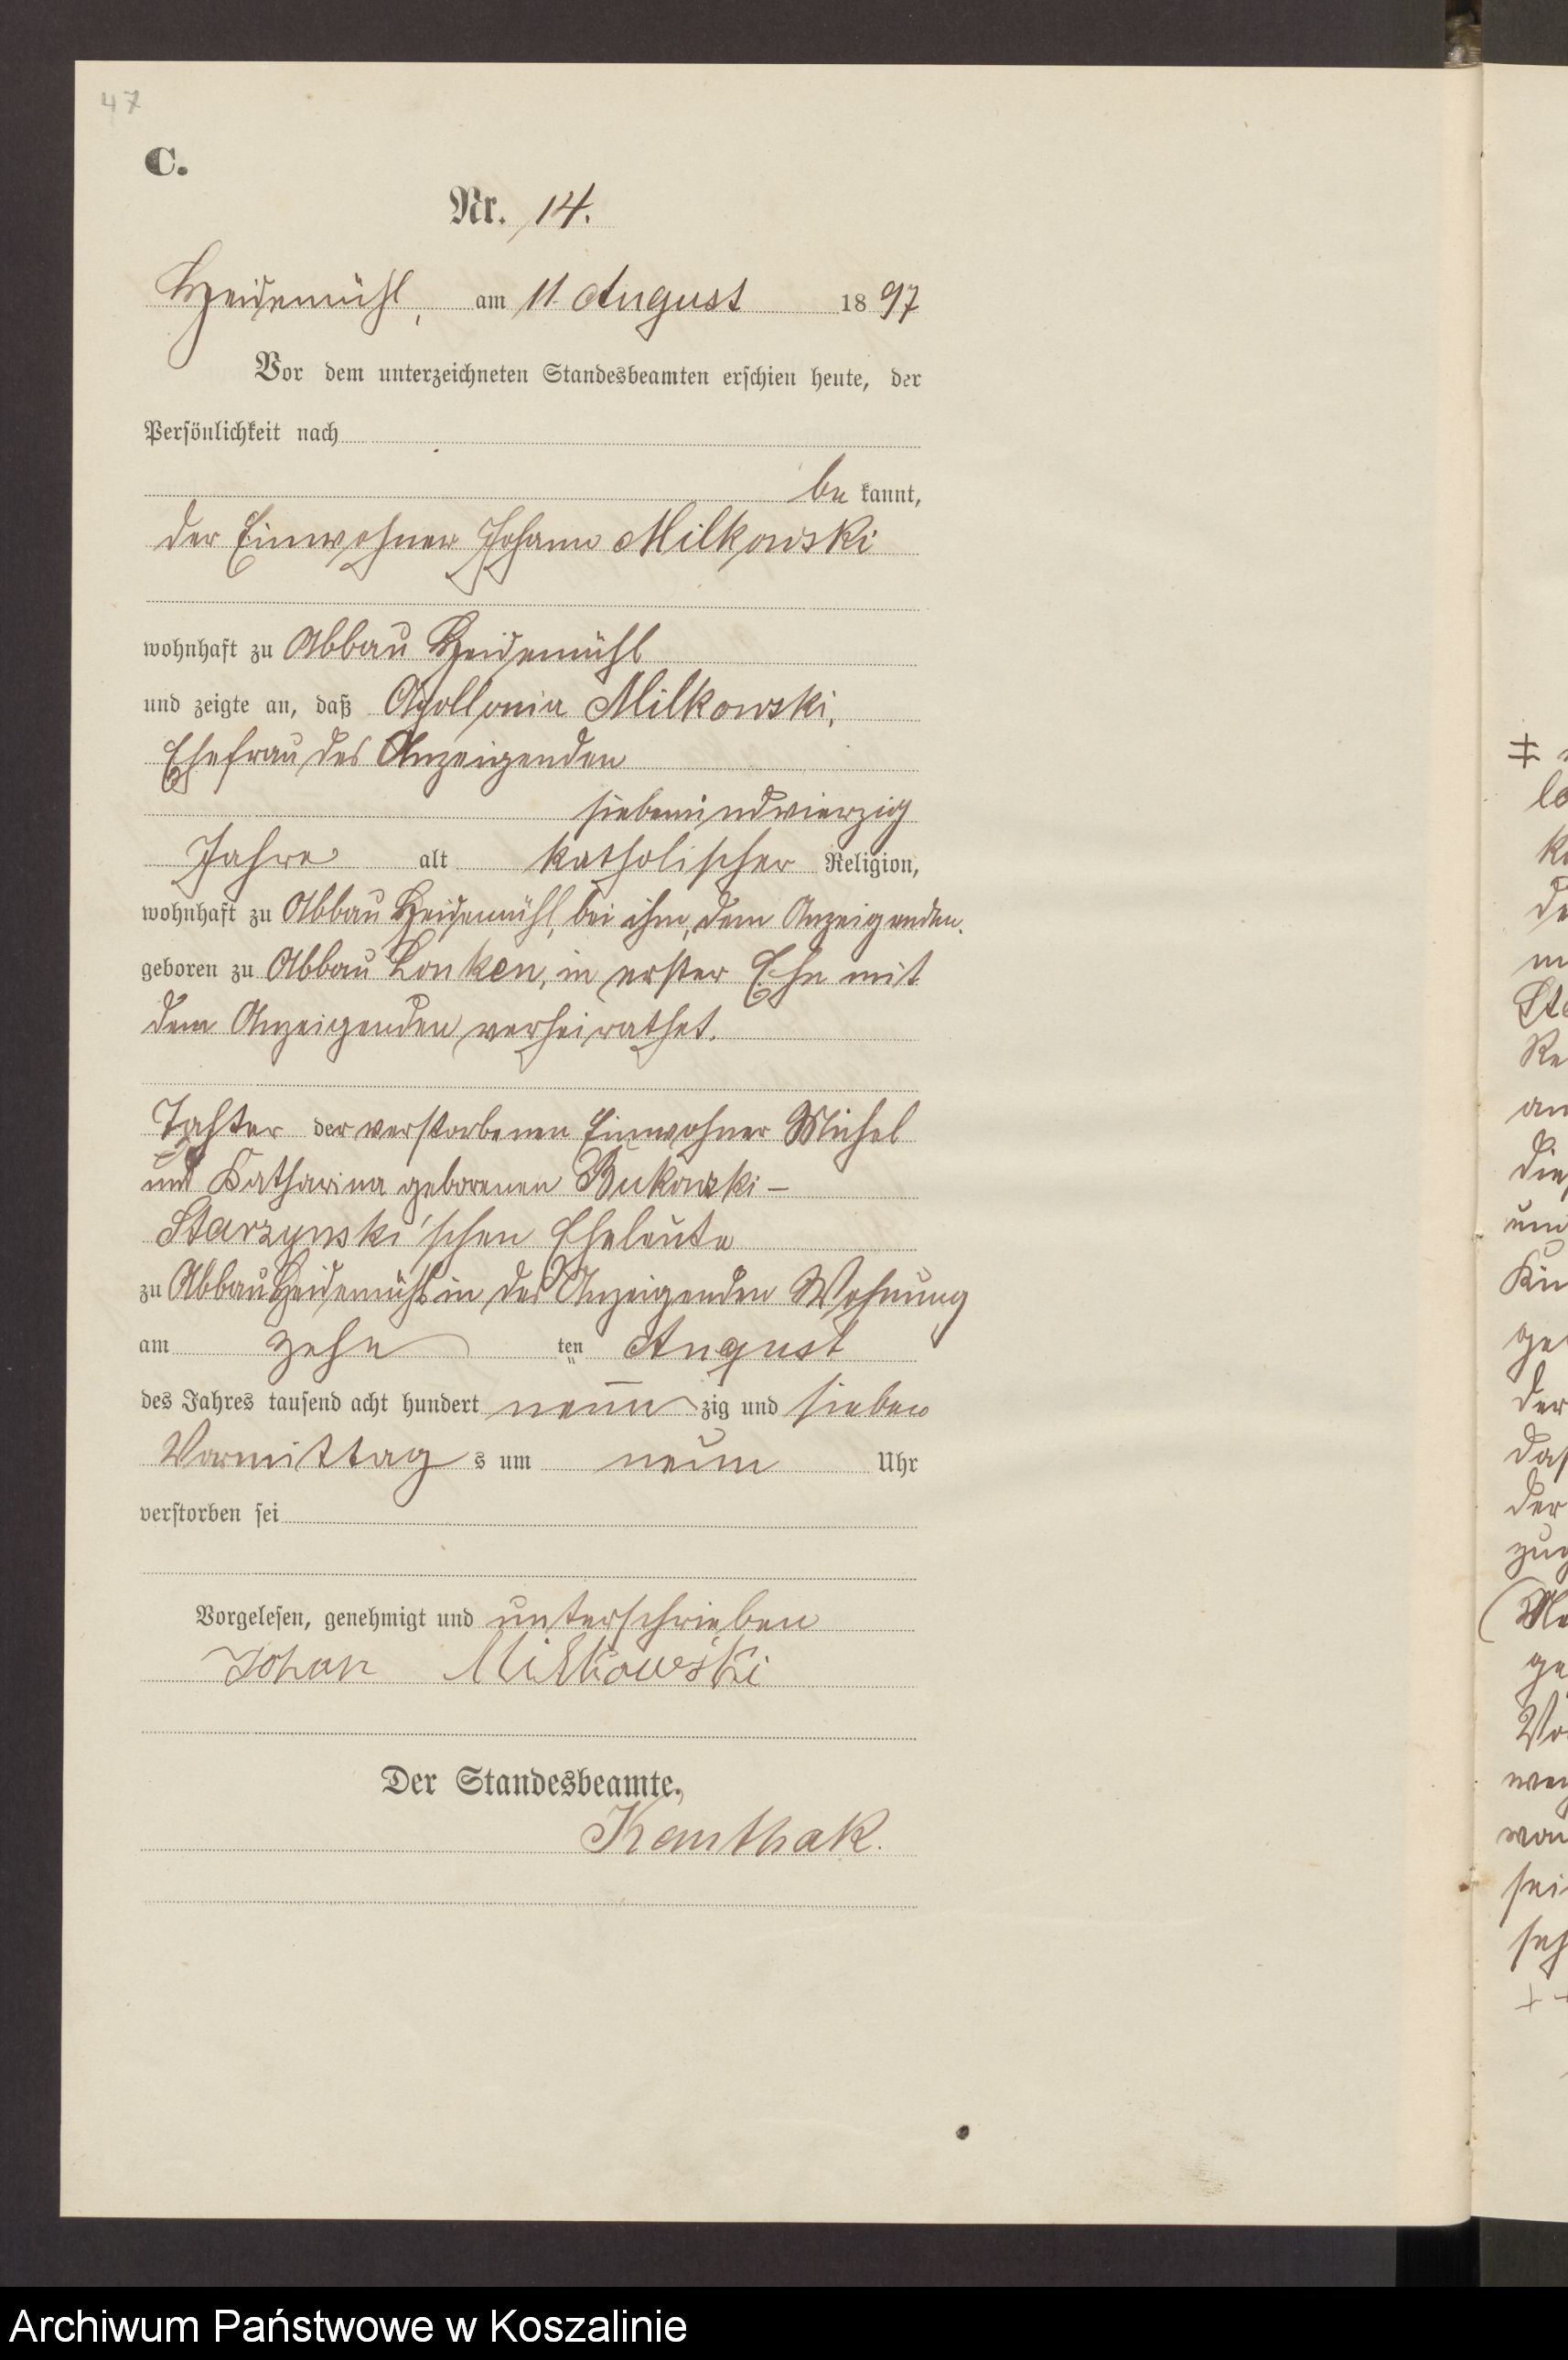 47
C.
Nr. 14.
Heidemühl, am 11 August 1897
Vor dem unterzeichneten Standesbeamten erschien heute, der
Persönlichkeit nach
be kannt,
der Einwohner Johann Milkowski
wohnhaft zu Abbau Heidemühl
und zeigte an, daß Apollonia Milkowski,
Ehefrau des Anzeigenden
siebenundvierzig
Jahre alt katholischer Religion,
wohnhaft zu Abbau Heidemühl, bei ihm, dem Anzeigenden.
geboren zu Abbau Lonken, in erster Ehe mit
dem Anzeigenden verheirathet.
Tochter der verstorbenen Einwohner Michel
und Katharina geborenen Bukowski-
Starzynski'schen Eheleute
zu Abbau Heidemühl in des Anzeigenden Wohnung
am zehn ten August
des Jahres tausend acht hundert neun zig und sieben
Vormittag s um neun Uhr
verstorben sei
Vorgelesen, genehmigt und unterschrieben
Johan Milkowski
Der Standesbeamte.
Kauthak.
Archiwum Państwowe w Koszalinie